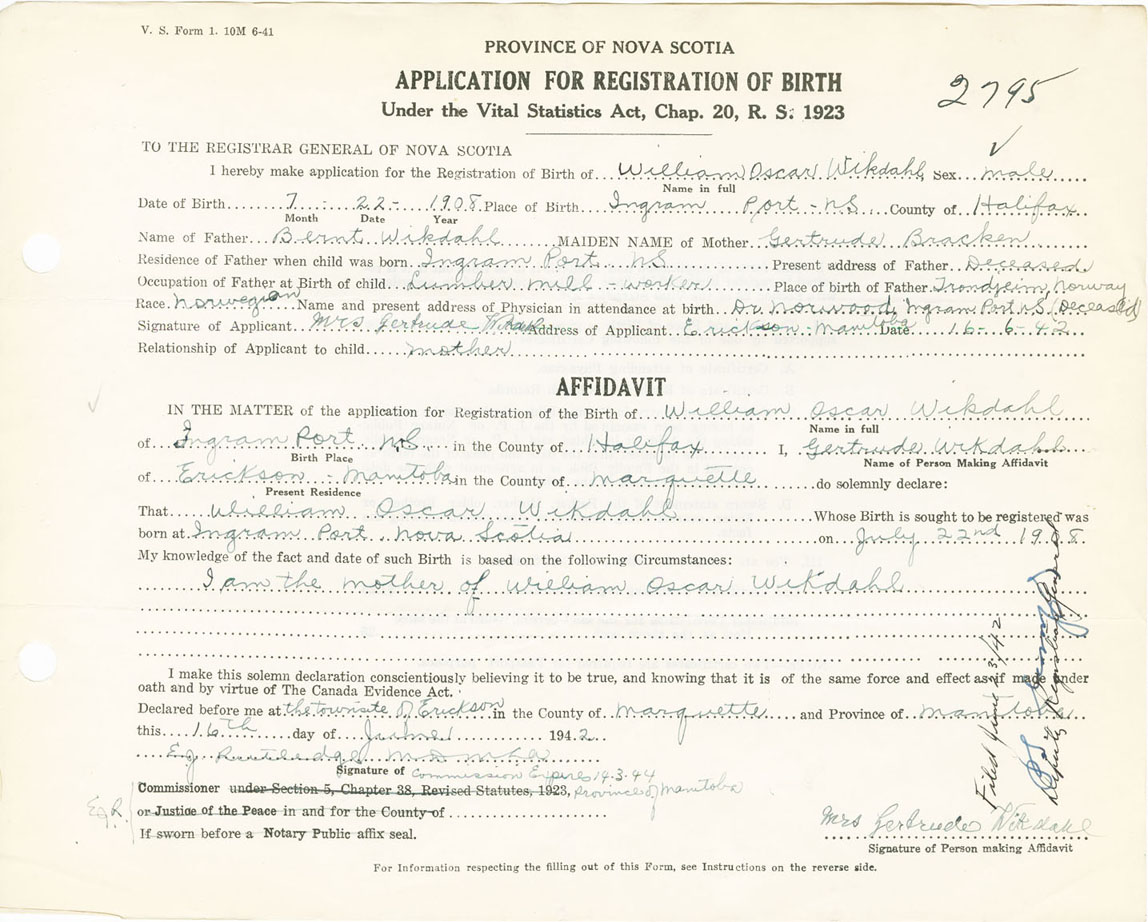 V. S. Form 1. 10M 6-41
PROVINCE OF NOVA SCOTIA
APPLICATION FOR REGISTRATION OF BIRTH
2795
Under the Vital Statistics Act, Chap. 20, R. S. 1923
TO THE REGISTRAR GENERAL OF NOVA SCOTIA
I hereby make application for the Registration of Birth of William Oscar Wikdahl Sex male
Name in full
Date of Birth 7 - 22 - 1908 Place of Birth Ingram Port - NS County of Halifax
Month Date Year
Name of Father Bernt Wikdahl MAIDEN NAME of Mother Gertrude Bracken
Residence of Father when child was born Ingram Port NS Present address of Father Deceased
Occupation of Father at Birth of child Lumber mill - worker Place of birth of Father Trondheim, Norway
Race Norwegian Name and present address of Physician in attendance at birth Dr Norwood, Ingram Port NS (Deceased)
Signature of Applicant Mrs Gertrude Wikdahl Address of Applicant Erickson - Manitoba Date 16 - 6 - 42
Relationship of Applicant to child mother
AFFIDAVIT
IN THE MATTER of the application for Registration of the Birth of William Oscar Wikdahl
Name in full
of Ingram Port NS in the County of Halifax I, Gertrude Wikdahl
Birth Place Name of Person Making Affidavit
of Erickson - Manitoba in the County of Marquette do solemnly declare:
Present Residence
That William Oscar Wikdahl Whose Birth is sought to be registered was
born at Ingram Port Nova Scotia on July 22nd 1908.
My knowledge of the fact and date of such Birth is based on the following Circumstances:
I am the mother of William Oscar Wikdahl
I make this solemn declaration conscientiously believing it to be true, and knowing that it is of the same force and effect as if made under
oath and by virtue of The Canada Evidence Act.
Declared before me at the townsite of Erickson in the County of Marquette and Province of Manitoba
this 16th day of June 1942
E.J. Rutledge M.D. MLA
Signature of Commission Expires 14.3.44
Commissioner under Section 5, Chapter 38, Revised Statutes, 1923, Province of Manitoba
E.J.R. or Justice of the Peace in and for the County of
If sworn before a Notary Public affix seal.
Mrs Gertrude Wikdahl
Signature of Person making Affidavit
For Information respecting the filling out of this Form, see Instructions on the reverse side.
Filed June 23/42
Deputy Registrar General